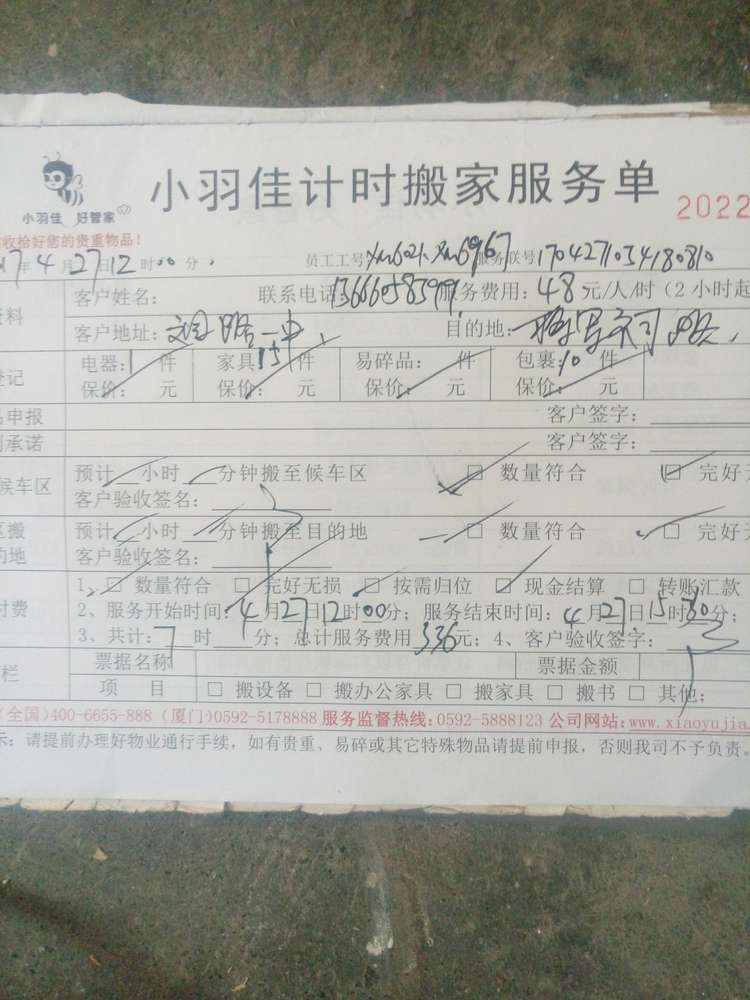 小羽佳计时搬家服务单
小羽佳 好管家
2022
收拾好您的贵重物品!
17年4月27日12时00分 员工工号 服务联号1704271034180810
资料 客户姓名: 联系电话13666058399 服务费用:48元/人/时(2小时起
客户地址: 一中 目的地:
登记 电器:1件 家具15件 易碎品: 件 包裹:10件
保价: 元 保价: 元 保价: 元 保价: 元
申报 客户签字:
承诺 客户签字:
候车区 预计 小时 分钟搬至候车区 □ 数量符合 □ 完好
客户验收签名:
搬 预计 小时 分钟搬至目的地 □ 数量符合 □ 完好
的地 客户验收签名:
1、□ 数量符合 □ 完好无损 □ 按需归位 □ 现金结算 □ 转账汇款
付费 2、服务开始时间:4月27日12时00分; 服务结束时间:4月27日15时30分;
3、共计:7时 分; 总计服务费用336元; 4、客户验收签字:
栏 票据名称 票据金额
项 目 □ 搬设备 □ 搬办公家具 □ 搬家具 □ 搬书 □ 其他:
(全国)400-6655-888 (厦门)0592-5178888 服务监督热线:0592-5888123 公司网站:www.xiaoyujia.
示: 请提前办理好物业通行手续,如有贵重、易碎或其它特殊物品请提前申报,否则我司不予负责。